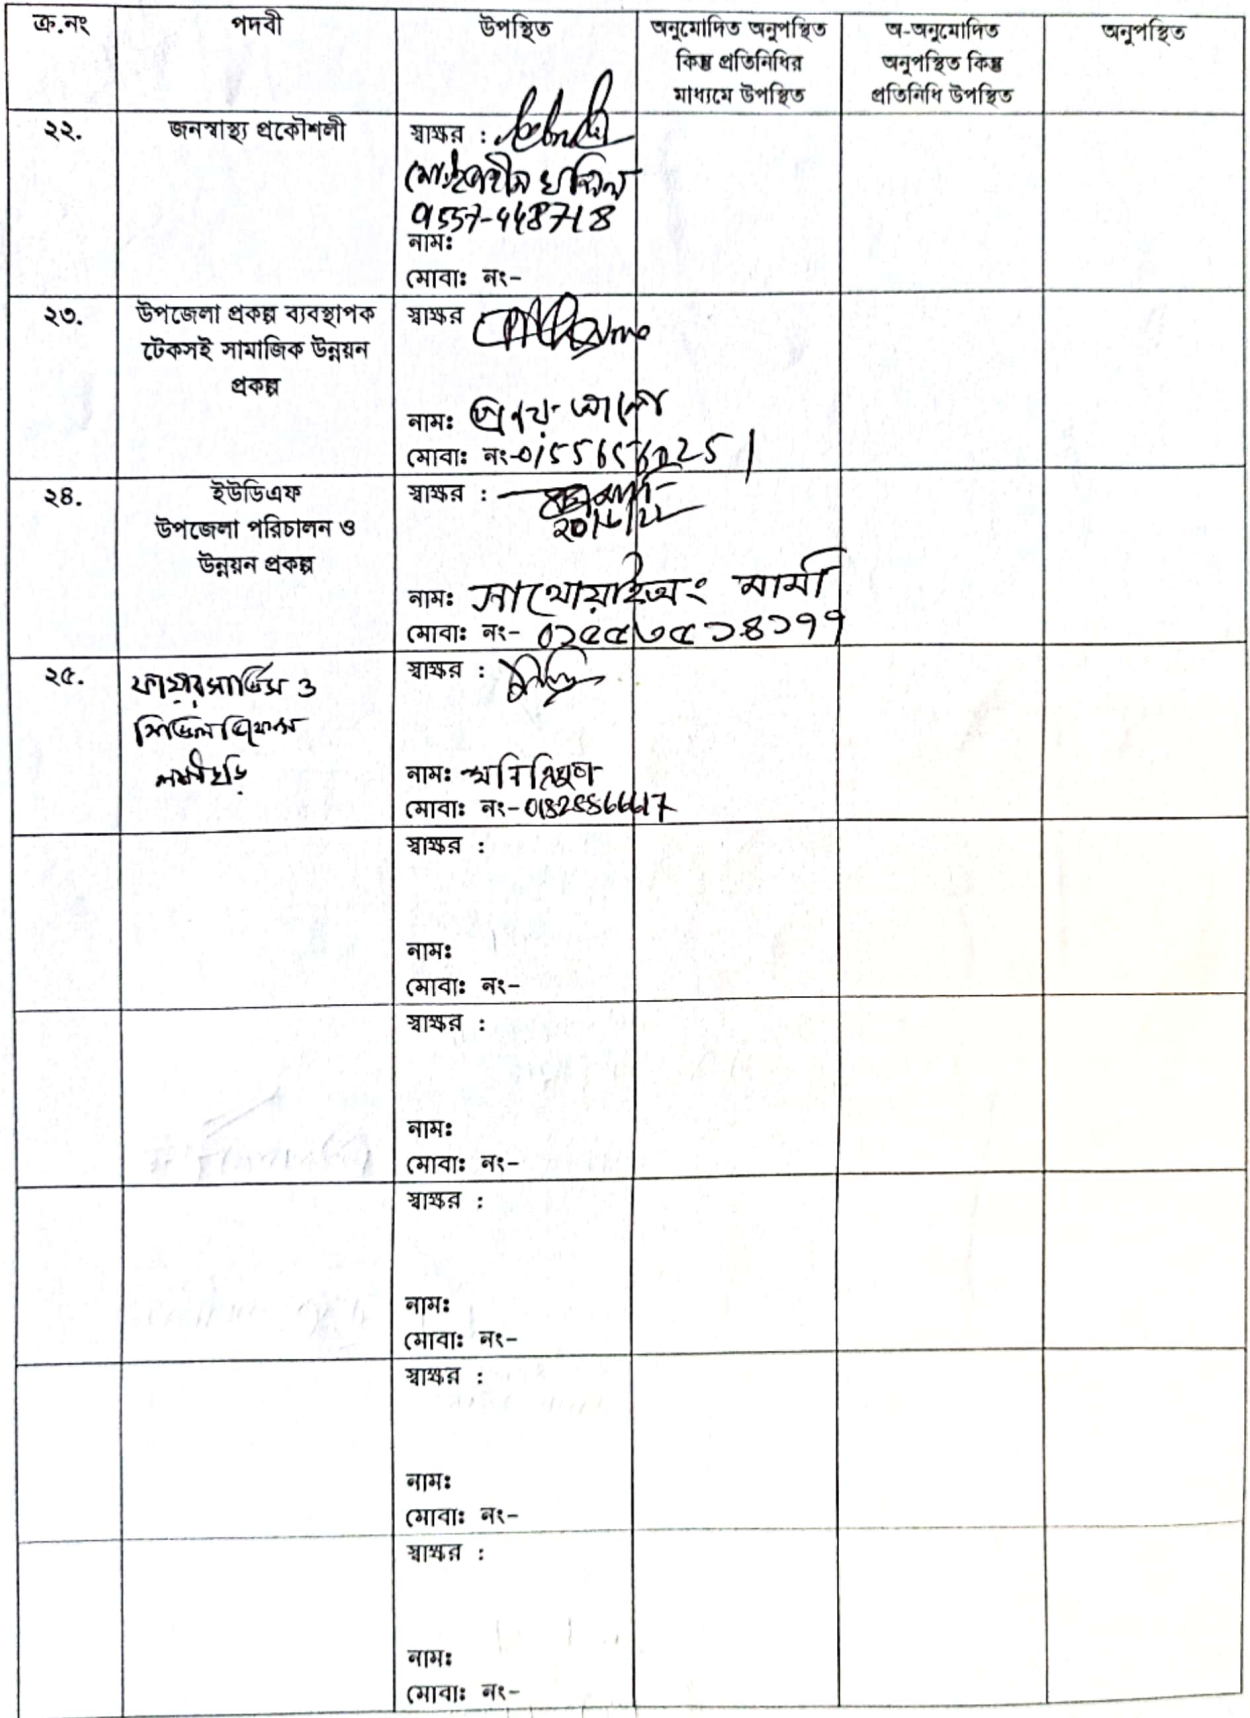 ক্র.নং পদবী উপস্থিত অনুমোদিত অনুপস্থিত কিন্তু প্রতিনিধির মাধ্যমে উপস্থিত অ-অনুমোদিত অনুপস্থিত কিন্তু প্রতিনিধি উপস্থিত অনুপস্থিত
২২. জনস্বাস্থ্য প্রকৌশলী স্বাক্ষর :
মোঃ
01557-448718
নাম:
মোবা: নং-
২৩. উপজেলা প্রকল্প ব্যবস্থাপক স্বাক্ষর
টেকসই সামাজিক উন্নয়ন
প্রকল্প
নাম:
মোবা: নং-
২৪. ইউডিএফ স্বাক্ষর :
উপজেলা পরিচালন ও
উন্নয়ন প্রকল্প
নাম: সাথোয়াইঅং মার্মা
মোবা: নং- ০১৫৫৩৫১৪১৭৭
২৫. ফায়ার সার্ভিস ও স্বাক্ষর :
সিভিল ডিফেন্স
লক্ষীছড়ি নাম:
মোবা: নং-01828866617
স্বাক্ষর :
নাম:
মোবা: নং-
স্বাক্ষর :
নাম:
মোবা: নং-
স্বাক্ষর :
নাম:
মোবা: নং-
স্বাক্ষর :
নাম:
মোবা: নং-
স্বাক্ষর :
নাম:
মোবা: নং-